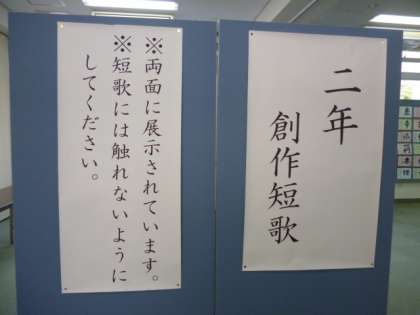 二年
創作短歌
※両面に展示されています。
※短歌には触れないように
してください。